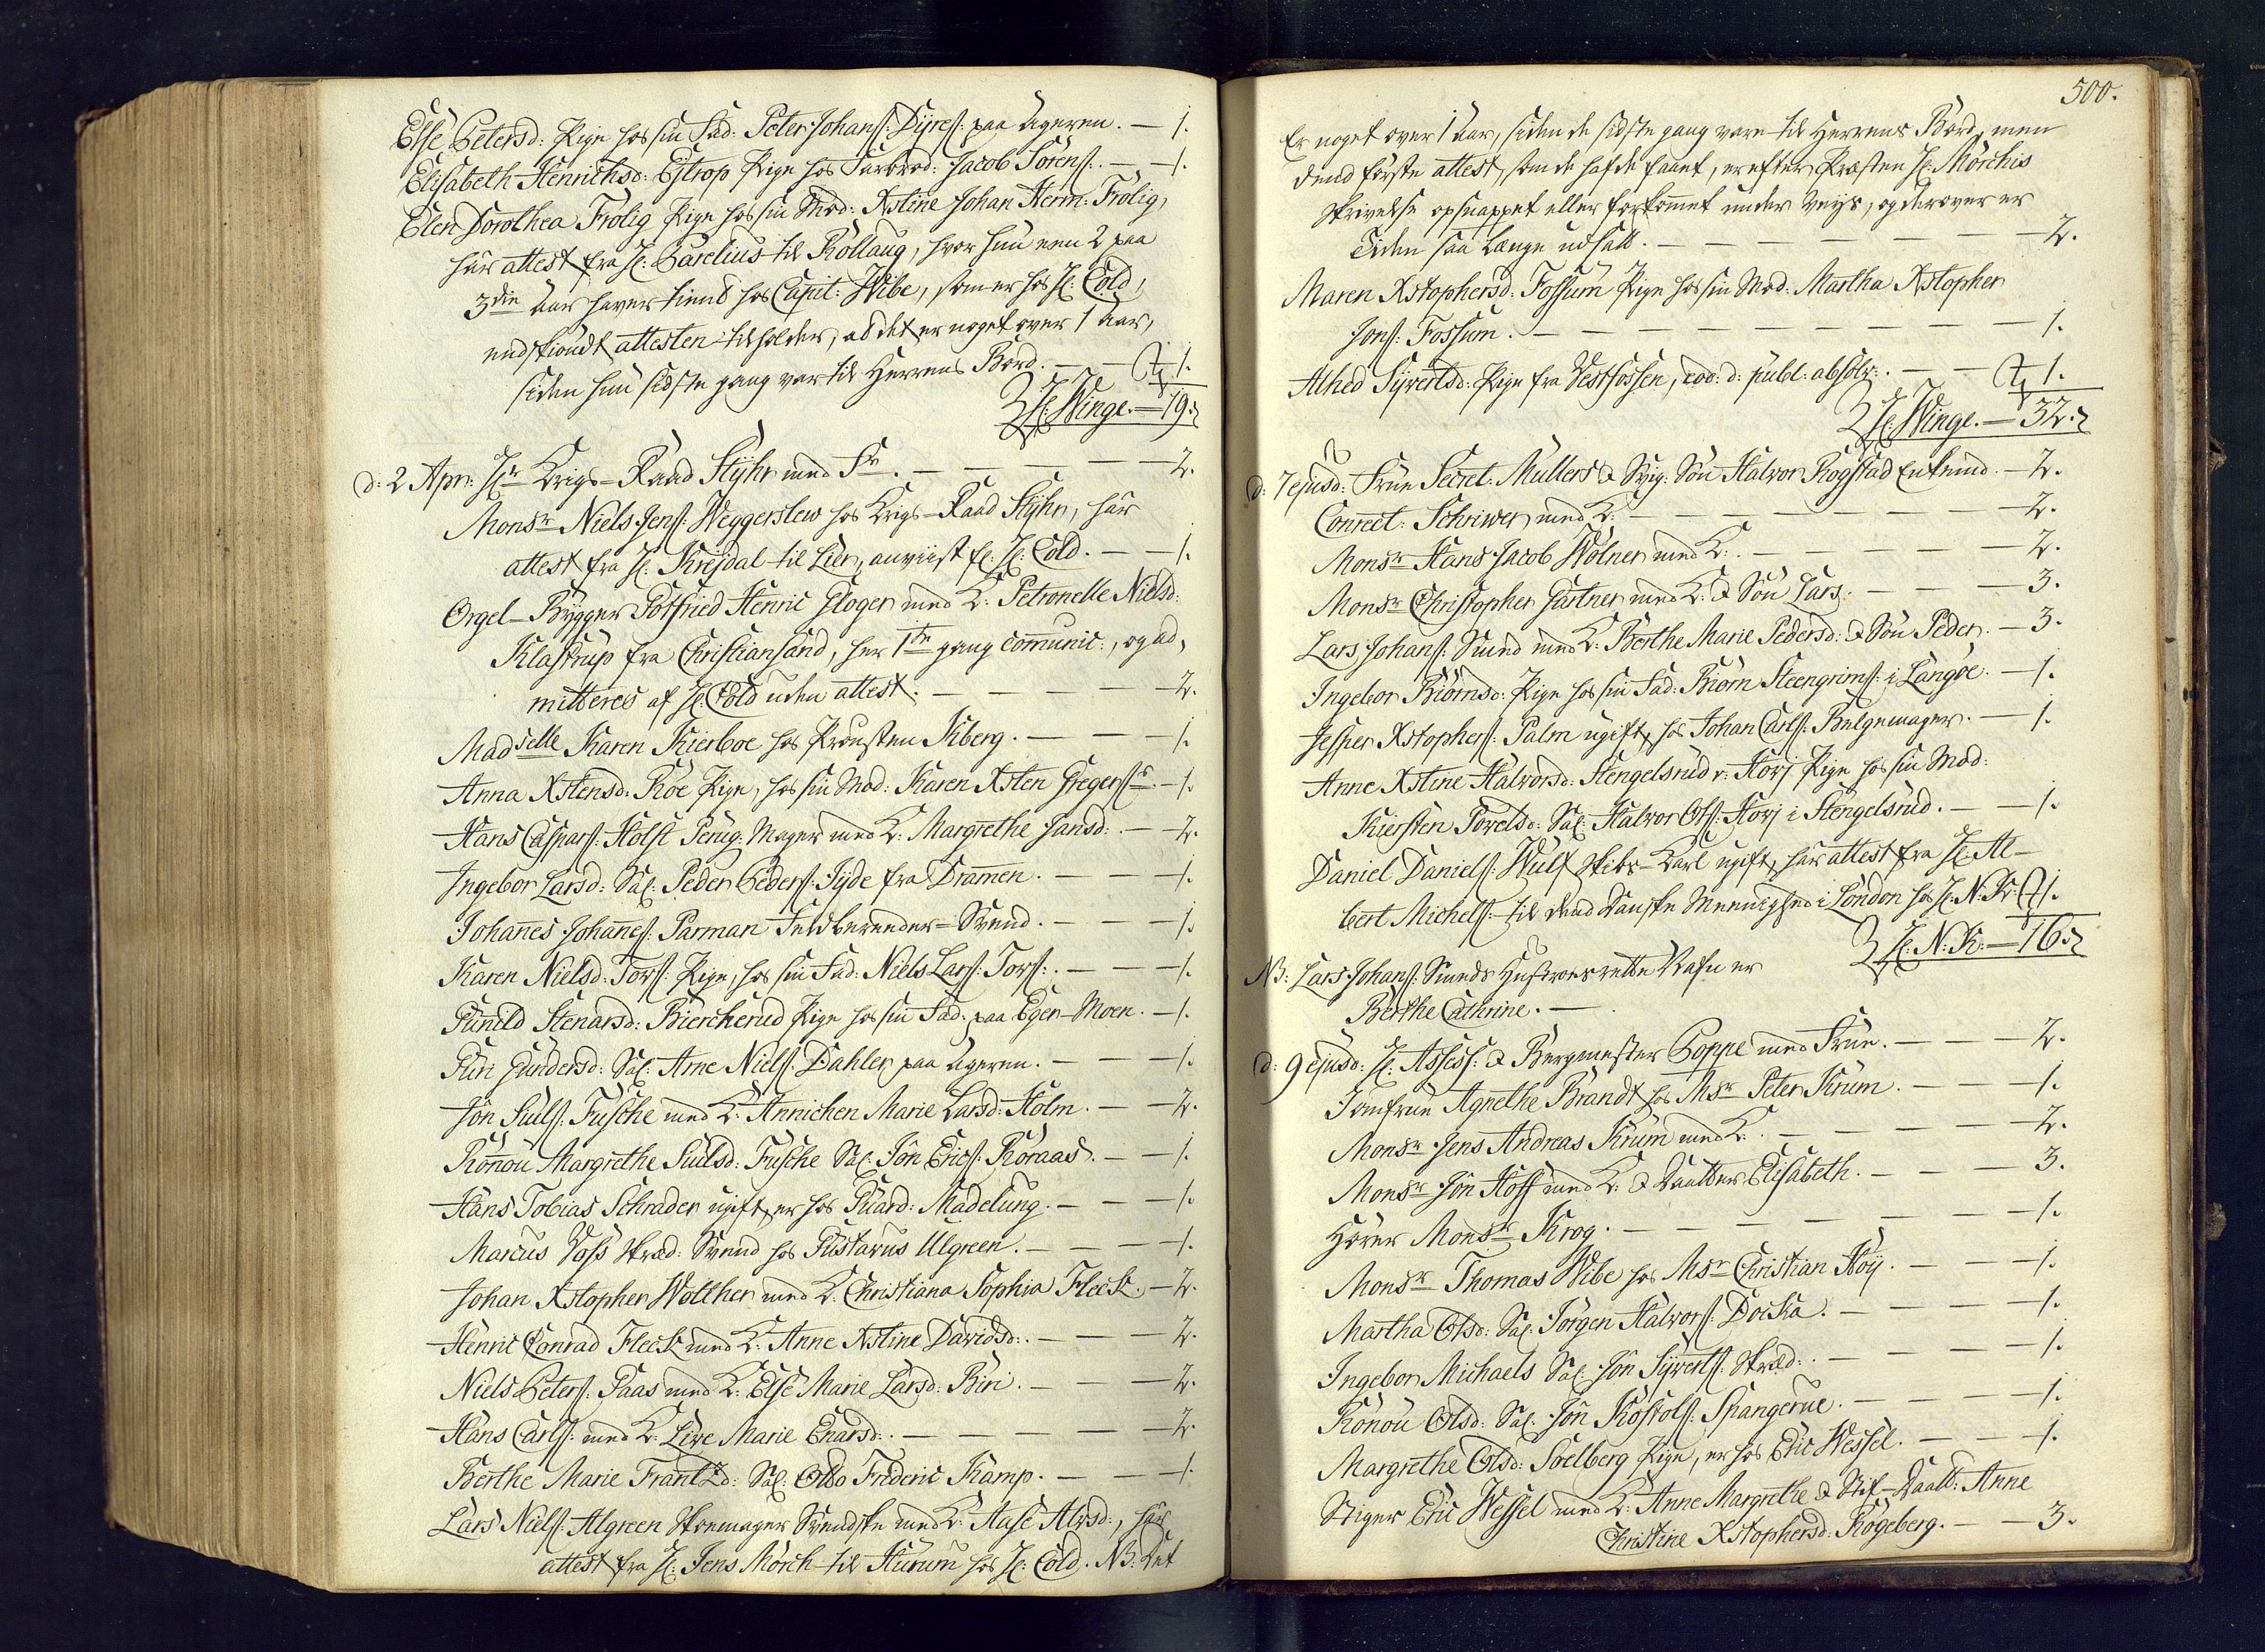 Else Petersd: Pige hos sin Fad: Peter Johanß: Dyreß: paa Ageren. — 1.
Elisabeth Henrichsd: Estrop Pige hos Farbrod: Jacob Sörenß: — — 1.
Elen Dorothea Frölig Pige hos sin Mod: Xstine Johan Herm: Frölig,
har attest fra H: Barclius til Rollaug, hvor hun een 2 paa
3die aar haver tient hos Capit: Wibe, som er hos H: Cold,
endskiöndt attesten tilholder, at det er noget over 1 aar,
siden hun sidste gang var til Herrens Bord. — 1.
H: Winge. — 19.
d: 2 Apr: Hr Krigs-Raad Stÿhr med Fr. — — — — 2.
Monsr Niels Jenß: Weggerslew hos Krigs-Raad Stÿhr, har
attest fra H: Krejdal til Lier, anviist H: Cold. — — 1.
Orgel-Bÿgger Gotfried Henric Gloger med K: Petronelle Nielsd:
Klastrup fra Christiansand, her 1te gang communic:, og ad,
mitteres af H: Cold uden attest. — — — — 2.
Madselle Karen Kierboe hos Provsten Kberg. — — — 1.
Anna Xstensd: Röe Pige, hos sin Mod: Karen Xsten Gregerßr — 1.
Hans Casparß: Holst Peruq: Mager med K: Margrethe Jansd: — 2.
Ingebor Larsd: Sal: Peder Pederß: Jÿde fra Dramen. — — — 1.
Johanes Johaneß: Parman Feldbereeder-Svend. — — — 1.
Karen Nielsd: Torß: Pige, hos sin Fad: Niels Larß: Torß: — — — 1.
Gunild Stenarsd: Biercherud Pige hos sin Fad: paa Eger-Moen. — 1.
Guri Gundersd: Sal: Arne Nielß: Dahler paa Ageren. — — — 1.
Jön Siulß: Fusche med K: Annichen Marie Larsd: Holm. — — 2.
Rönou Margrethe Siulsd: Fusche Sal: Jön Ericß: Röraas. — — 1.
Hans Tobias Schrader ugift, er hos Guard: Madelung. — — — 1.
Marcus Voß Skræd: Svend hos Gustavus Ulgreen. — — — 1.
Johan Xstopher Wolther med K: Christiana Sophia Fleck. — 2.
Henric Conrad Fleck med K: Anne Xstine Davidsd: — — — 2.
Niels Peterß: Paas med K: Else Marie Larsd: Biri. — — — 2.
Hans Carlß: med K: Live Marie Enarsd: — — — — 2.
Berthe Marie Frantzd: Sal: Otto Frideric Kamp. — — — 1.
Lars Nielß: Algreen Skomager Svendske med K: Aase Alvsd:, har
attest fra H: Jens Mörch til Hurum hos H: Cold. NB. Det
500.
Er noget over 1 aar, siden de sidste gang vare til Herrens Bord, men
dend förste attest, som de hafde faaet, er efter Præsten H: Mörchis
Skrivelse opsnappet eller forkommet under Veijs, og derover er
Tiden saa længe udsatt. — — — — — — — 2.
Maren Xstophersd: Foßum Pige hos sin Mod: Martha Xstopher
Jonß: Fossum. — — — — — — — — 1.
Alhed Sÿvertsd: Pige fra Vestfossen, eod: d: publ: absolv: — — 1.
H: Winge. — 32.
d: 7 ejusd: Frue Secret: Mullers & Svig: Sön Halvor Rogstad Enkemd — 2.
Conrect: Schriwer med K: — — — — — — — 2.
Monsr Hans Jacob Wölner med K: — — — — — 2.
Monsr Christopher Gartner med K: & Sön Lars. — — — 3.
Lars Johanß: Smed med K: Berthe Marie Pedersd: & Sön Peder. — 3.
Ingebor Biörnsd: Pige hos sin Fad: Biörn Steengrimß: i Langöe. — 1.
Jesper Xstopherß: Palm ugift, hos Johan Carlß: Belgemager. — 1.
Anne Xstine Halvorsd: Stengelsrud v: Korj Pige hos sin Mod:
Kiersten Torelsd: Sal: Halvor Olß: Korj i Stengelsrud. — — 1.
Daniel Danielß: Wulf Skibs-Karl ugift, har attest fra H: Al-
bert Michelß: til dend danske Meenighed i London hos H: N: K: 1.
H: N: K: — 16.
NB: Lars Johanß: Smeds Hustroes rette Nafn er
Berthe Cathrine. —
d: 9 ejusd: H: Assess: & Bergmester Poppe med Frue. — — — 2.
Jomfrue Agnethe Brandt hos Msr Peter Krum. — — — 1.
Monsr Jens Andreas Krum med K: — — — — — 2.
Monsr Jön Hoff med K: & Daatter Elisabeth. — — — 3.
Hörer Monsr Krog. — — — — — — — 1.
Monsr Thomas Wibe hos Msr Christian Höÿ. — — — 1.
Martha Olsd: Sal: Jörgen Halvorß: Docka. — — — — 1.
Ingebor Michaels Sal: Jön Sÿvertß: Skræd: — — — — 1.
Rönou Olsd: Sal: Jön Koßtolß: Spangerue. — — — — 1.
Margrethe Olsd: Soelberg Pige, er hos Eric Wessel. — — — 1.
Stiger Eric Wessel med K: Anne Margrethe & Stif-Daatt: Anne
Christine Xstophersd: Rogeberg. — — 3.